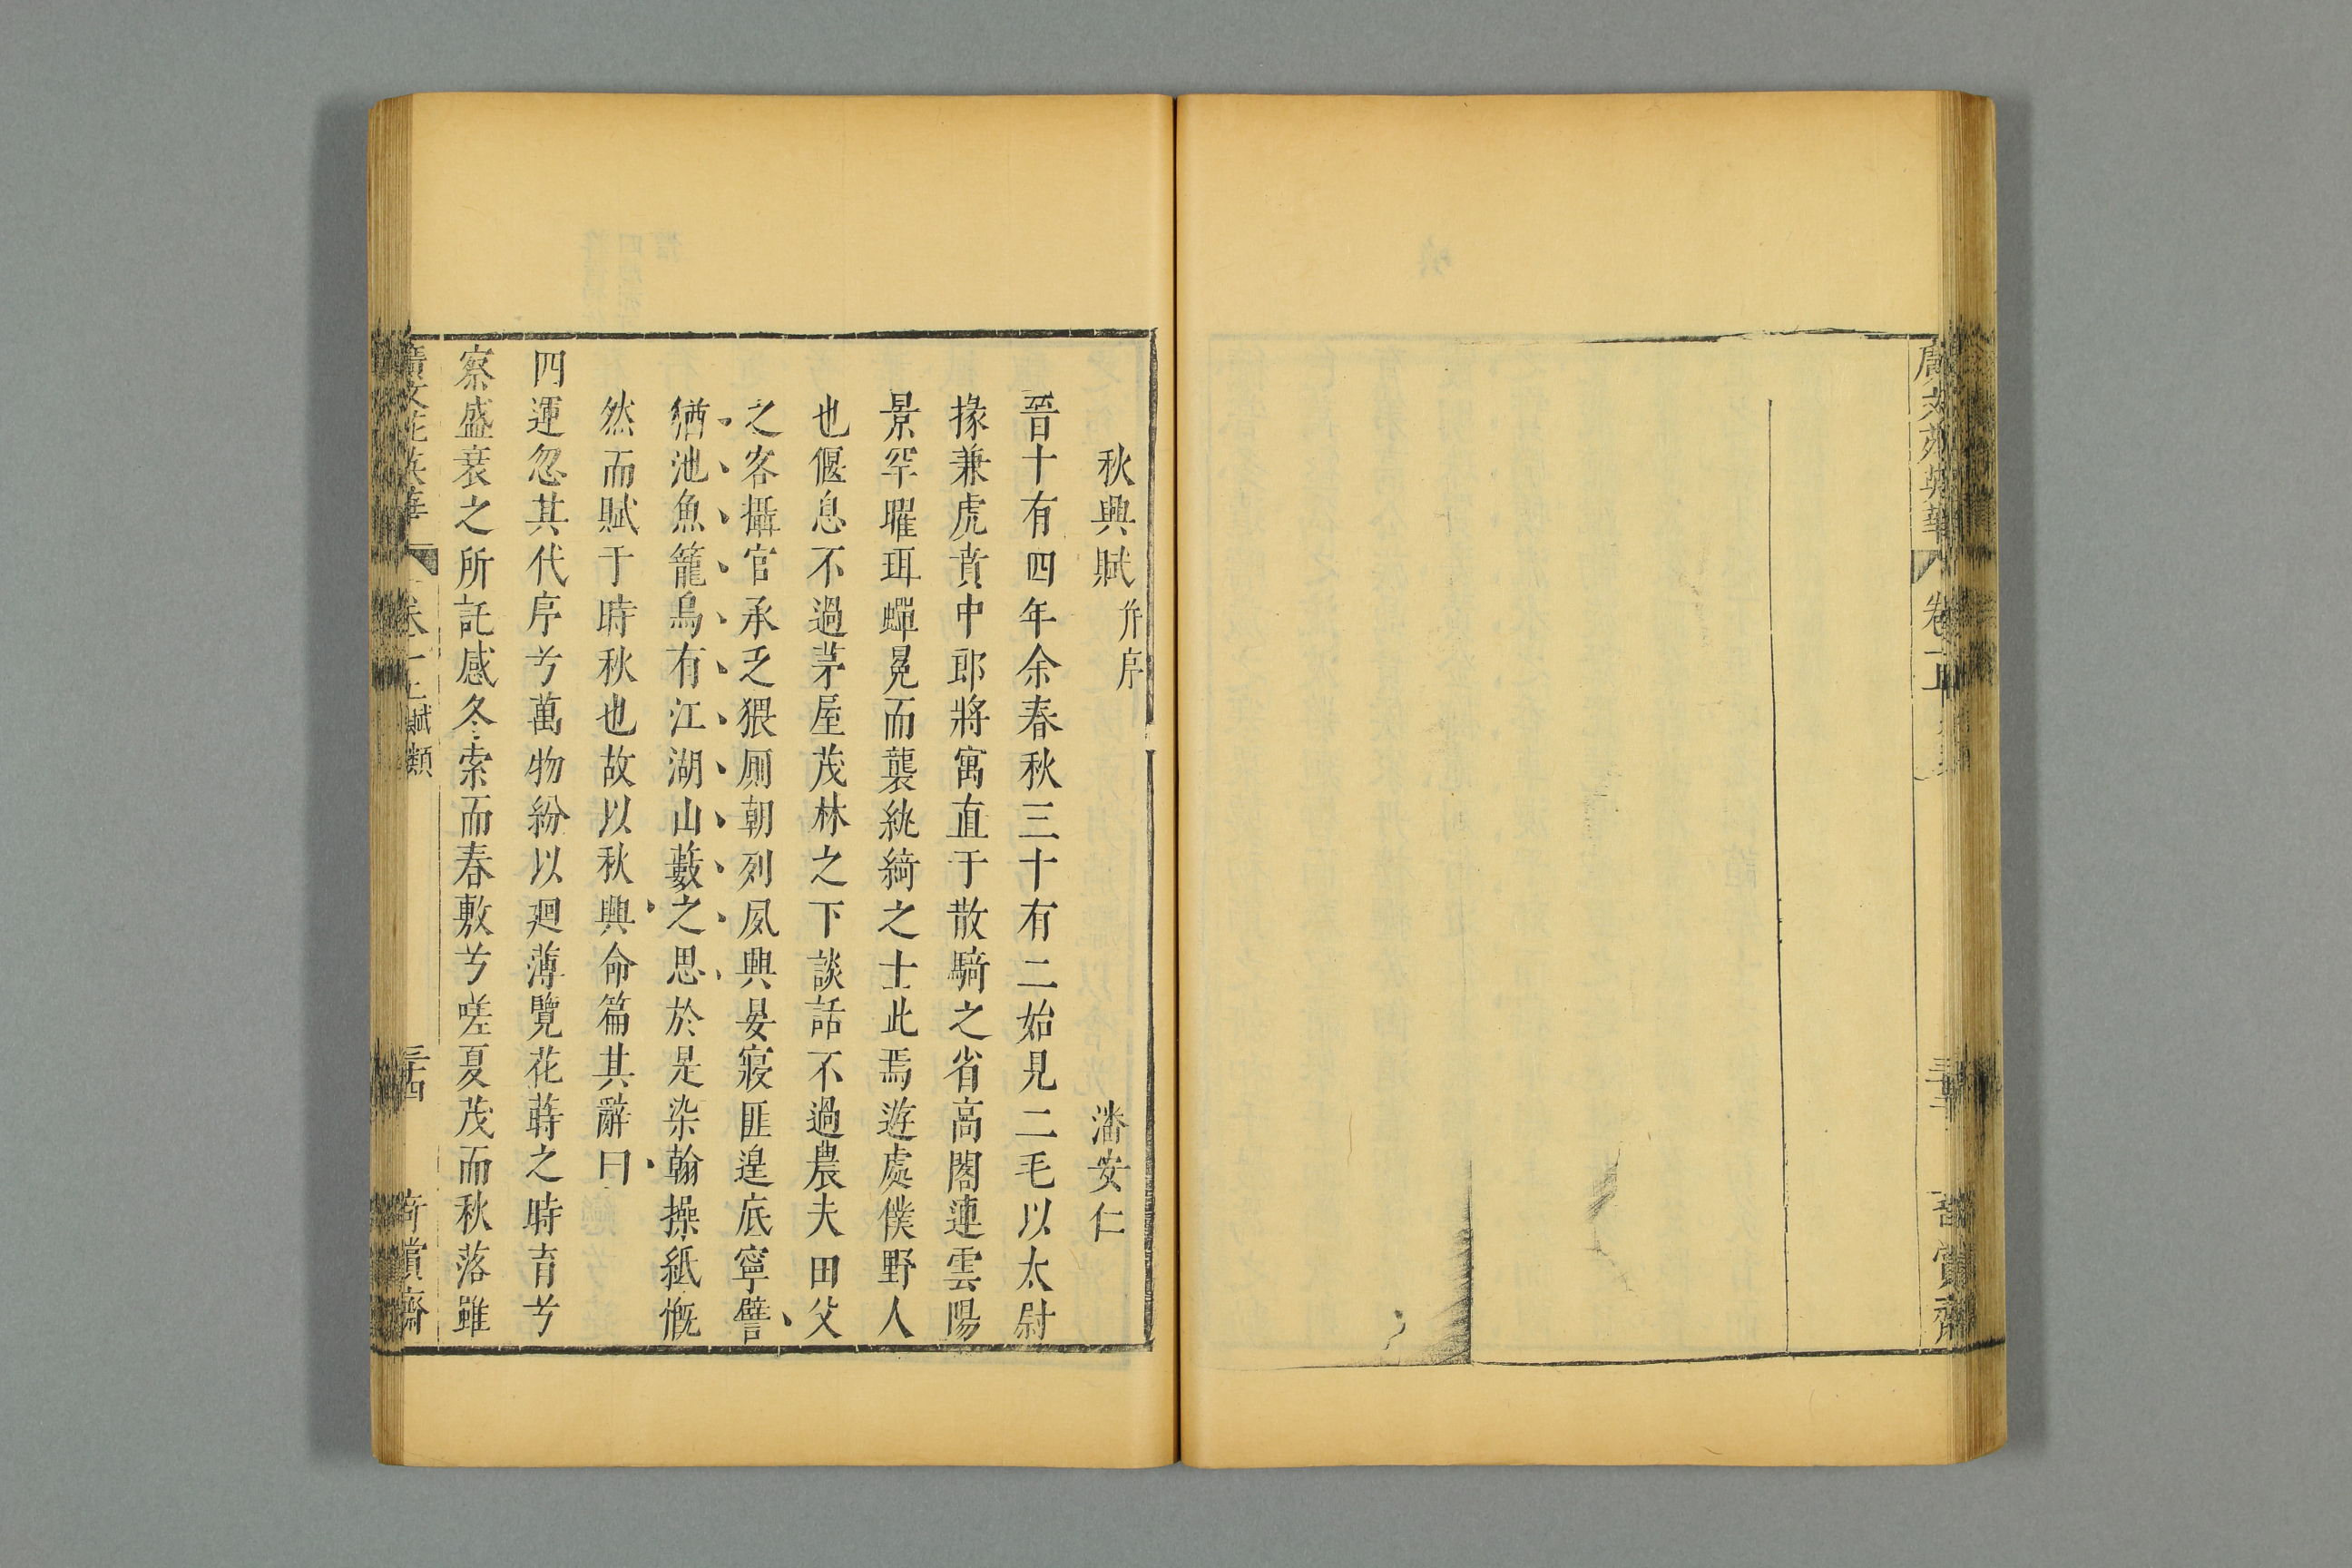 廣文苑英華 卷一上 賞齋
秋興賦 并序 潘安仁
晉十有四年余春秋三十有二始見二毛以太尉
掾兼虎賁中郎將寓直于散騎之省高閣連雲陽
景罕曜珥蟬冕而襲紈綺之士此焉遊處僕野人
也偃息不過茅屋茂林之下談話不過農夫田父
之客攝官承乏猥厠朝列夙興晏寢匪遑底寧譬
猶池魚籠鳥有江湖山藪之思於是染翰操紙慨
然而賦于時秋也故以秋興命篇其辭曰
四運忽其代序兮萬物紛以廻薄覽花蒔之時育兮
察盛衰之所託感冬索而春敷兮嗟夏茂而秋落雖
廣文苑英華 卷一上 賦類 三十四 奇賞齋